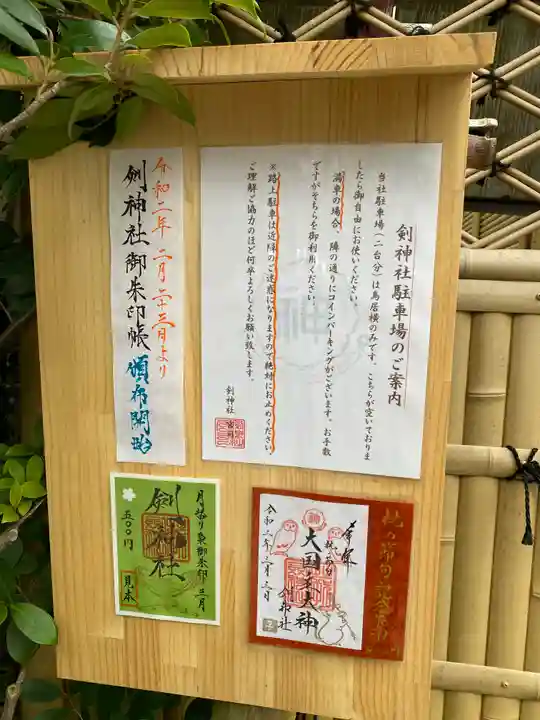 剣神社駐車場のご案内
当社駐車場（二台分）は鳥居横のみです。こちらが空いておりま
したら御自由にお使いください。
満車の場合、隣の通りにコインパーキングがございます。お手数
ですがそちらを御利用ください。
※路上駐車は近隣のご迷惑になりますので絶対にお止めください。
ご理解ご協力のほど何卒よろしくお願い致します。
剣神社
令和二年 二月二十三日より
剣神社御朱印帳 頒布開始
月替り御朱印 三月
剣神社
五〇〇円
見本
桃の節句
奉拝
桃の節句
大国主大神
令和二年三月三日
剣神社